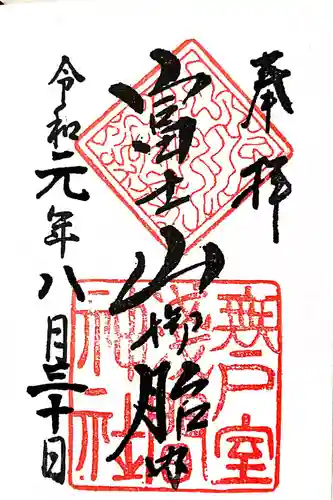 奉拝
富士山御胎内
無戸室浅間神社
令和元年八月三十日